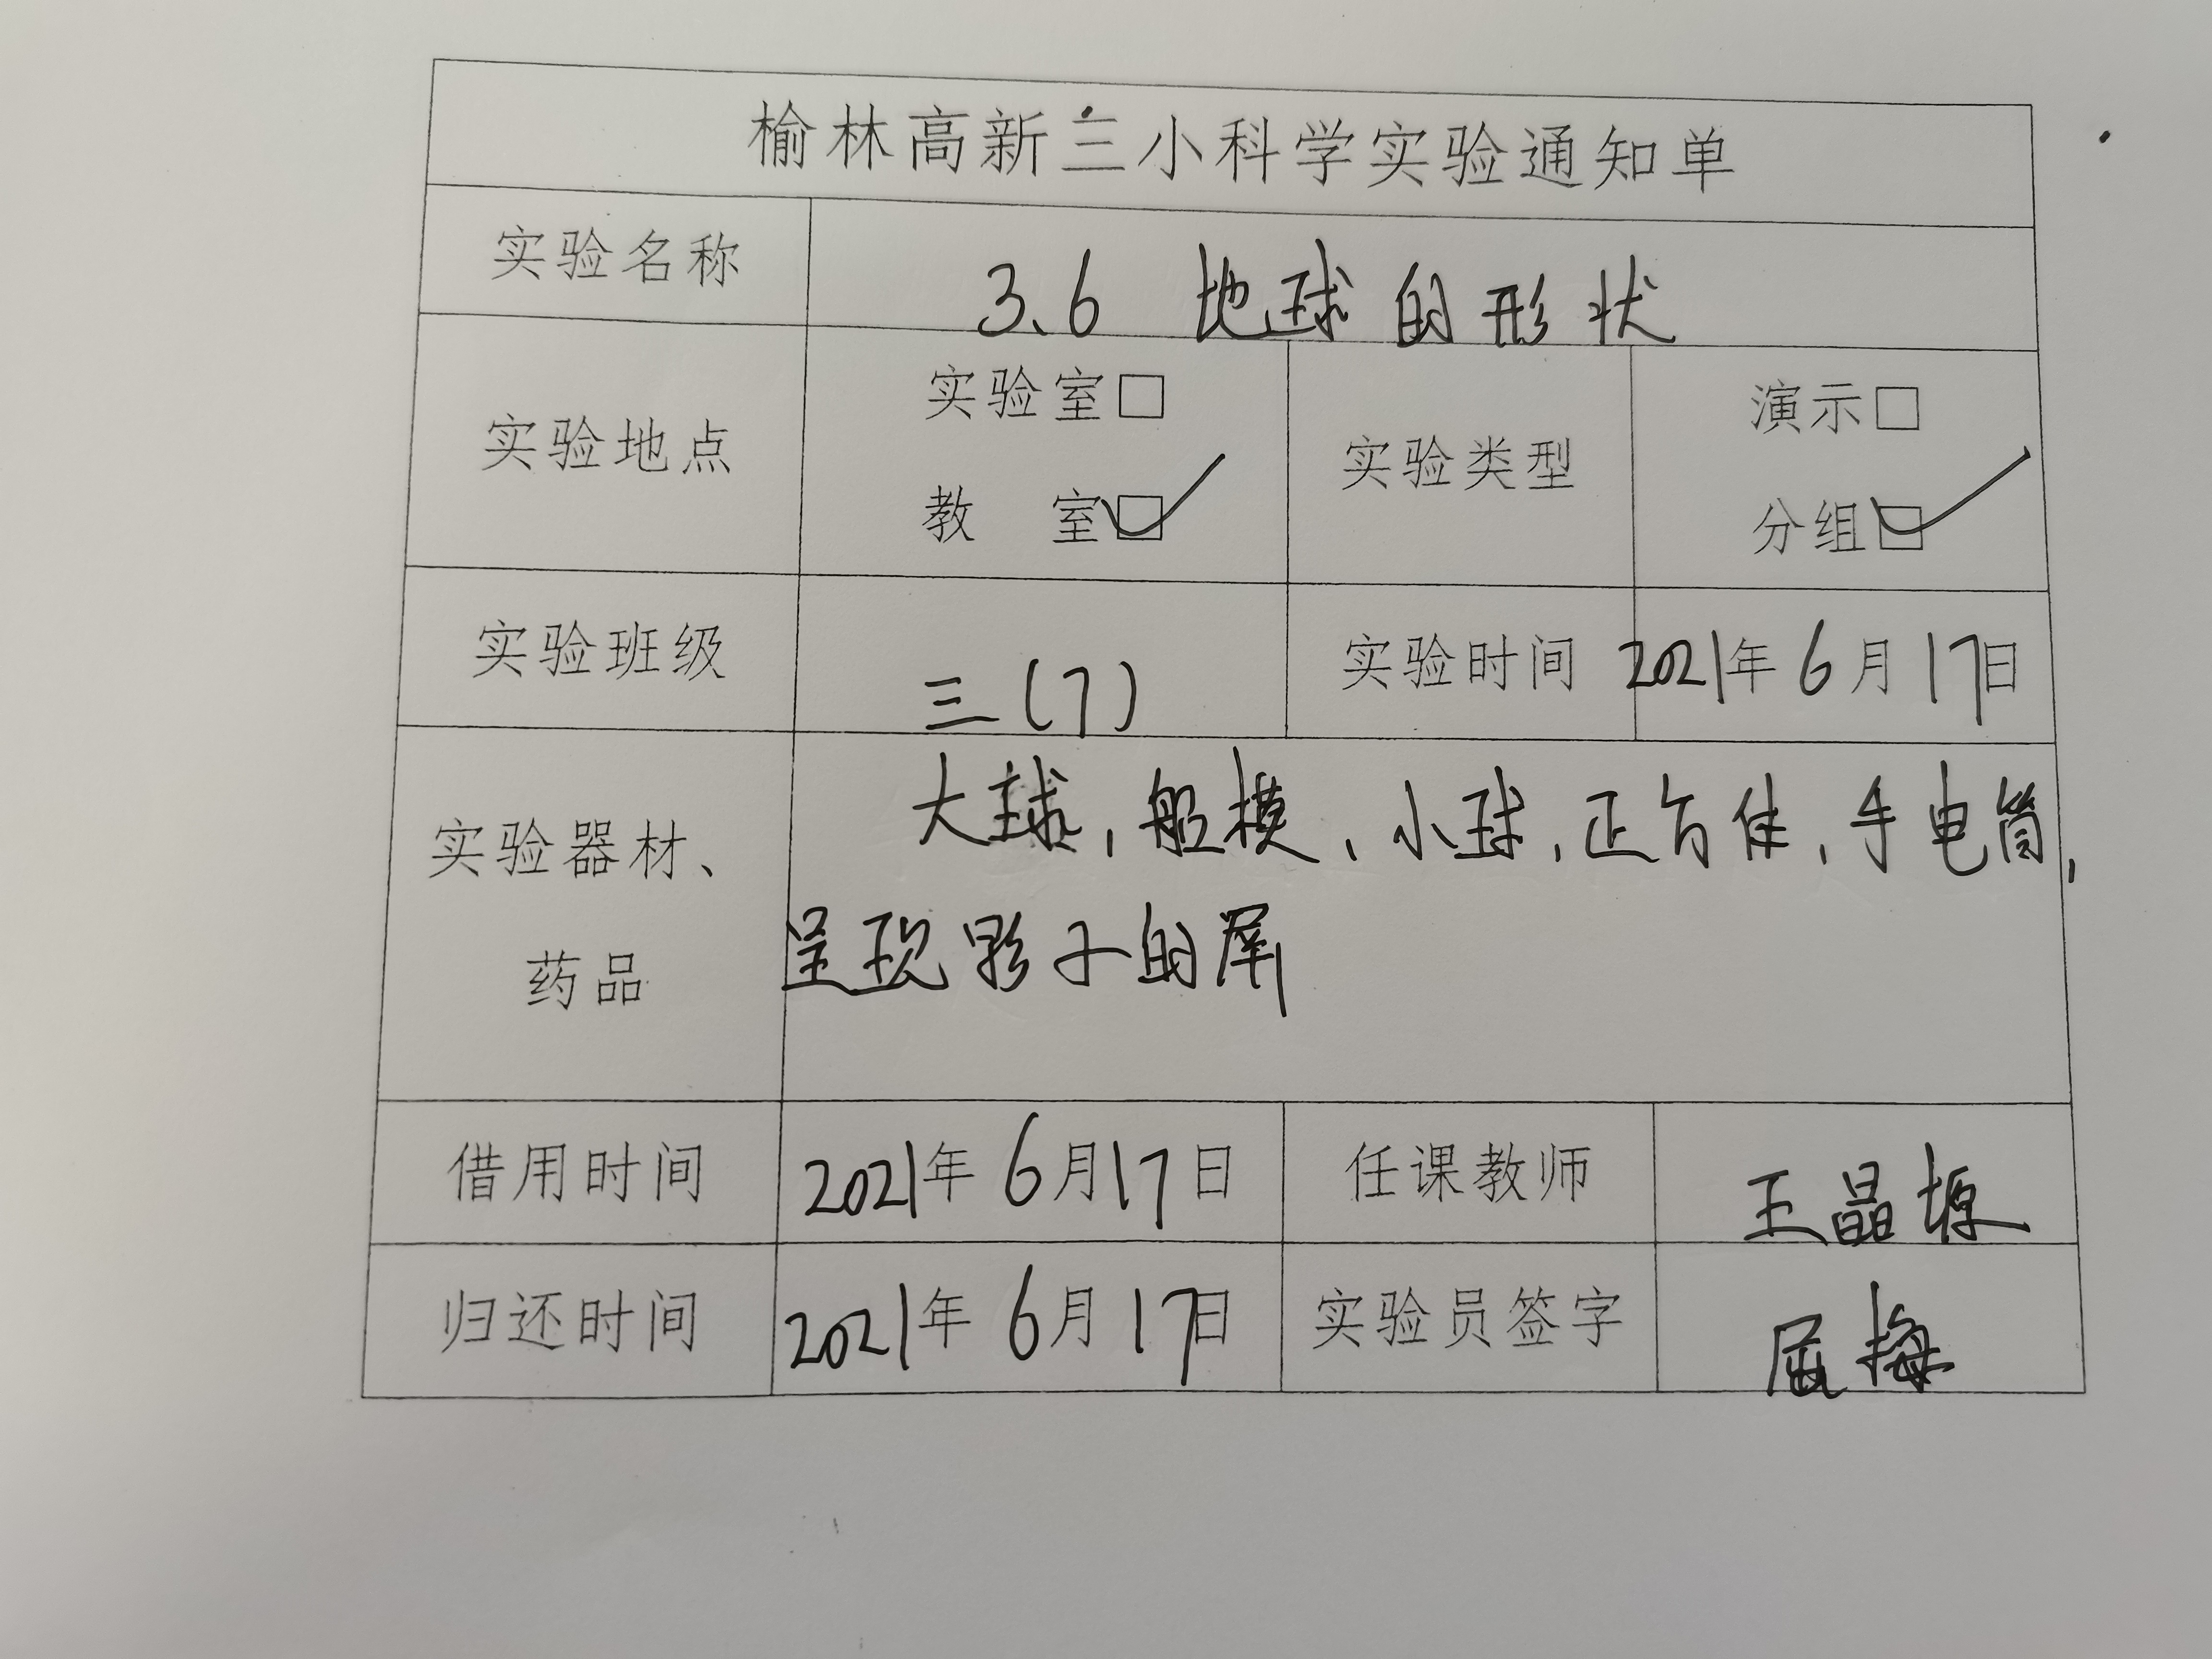 榆林高新三小科学实验通知单
实验名称 3.6 地球的形状
实验地点 实验室□ 教 室☑ 实验类型 演示□ 分组☑
实验班级 三(7) 实验时间 2021年6月17日
实验器材、药品 大球,船模、小球,正方体,手电筒,
呈现影子的屏
借用时间 2021年6月17日 任课教师 王晶
归还时间 2021年6月17日 实验员签字 屈梅